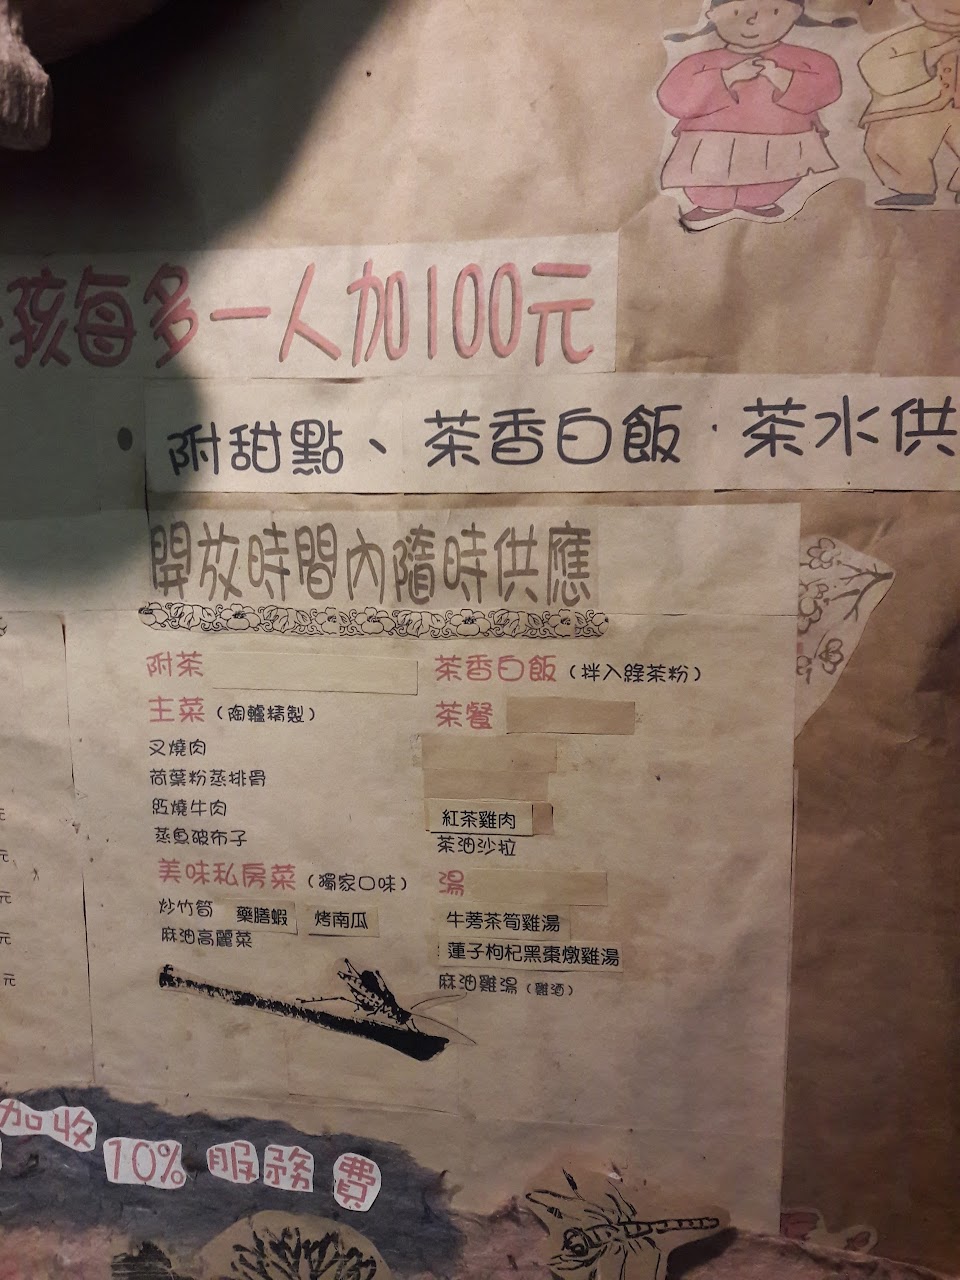 孩每多一人加100元
• 附甜點、茶香白飯·茶水供
開放時間內隨時供應
附茶
主菜（陶轤精製）
叉燒肉
荷葉粉蒸排骨
紅燒牛肉
蒸魚破布子
美味私房菜（獨家口味）
炒竹筍 藥膳蝦 烤南瓜
麻油高麗菜
茶香白飯（拌入綠茶粉）
茶餐
紅茶雞肉
茶油沙拉
湯
牛蒡茶筍雞湯
蓮子枸杞黑棗燉雞湯
麻油雞湯（雞酒）
元
元
元
元
元
加收
10% 服務費